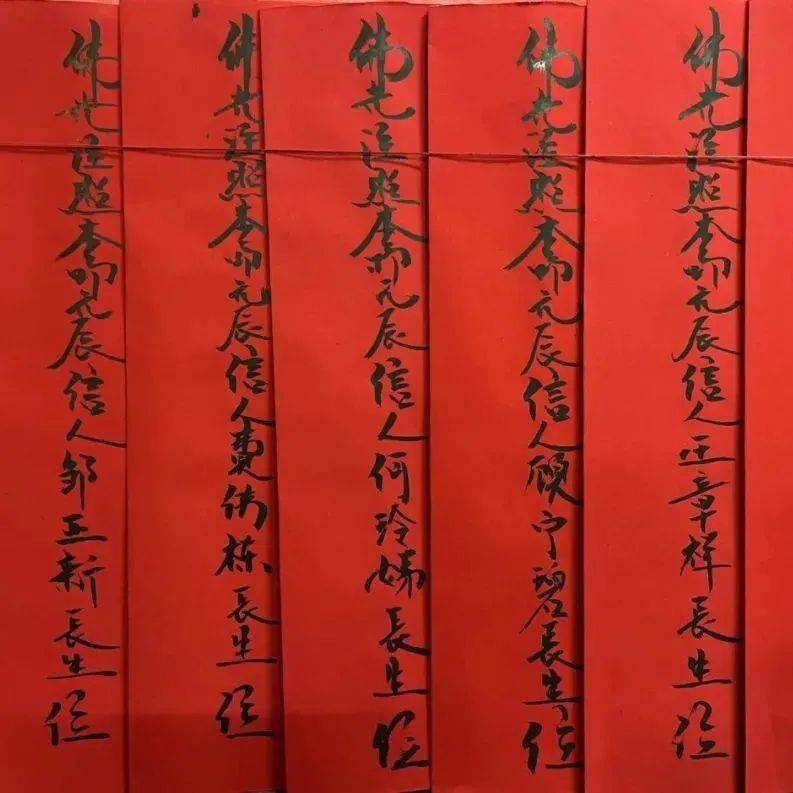 佛光注照本命元辰信人王章祥長生位
佛光注照本命元辰信人顾宁碧長生位
佛光注照本命元辰信人何玲娣長生位
佛光注照本命元辰信人费伟栋長生位
佛光注照本命元辰信人邹新長生位